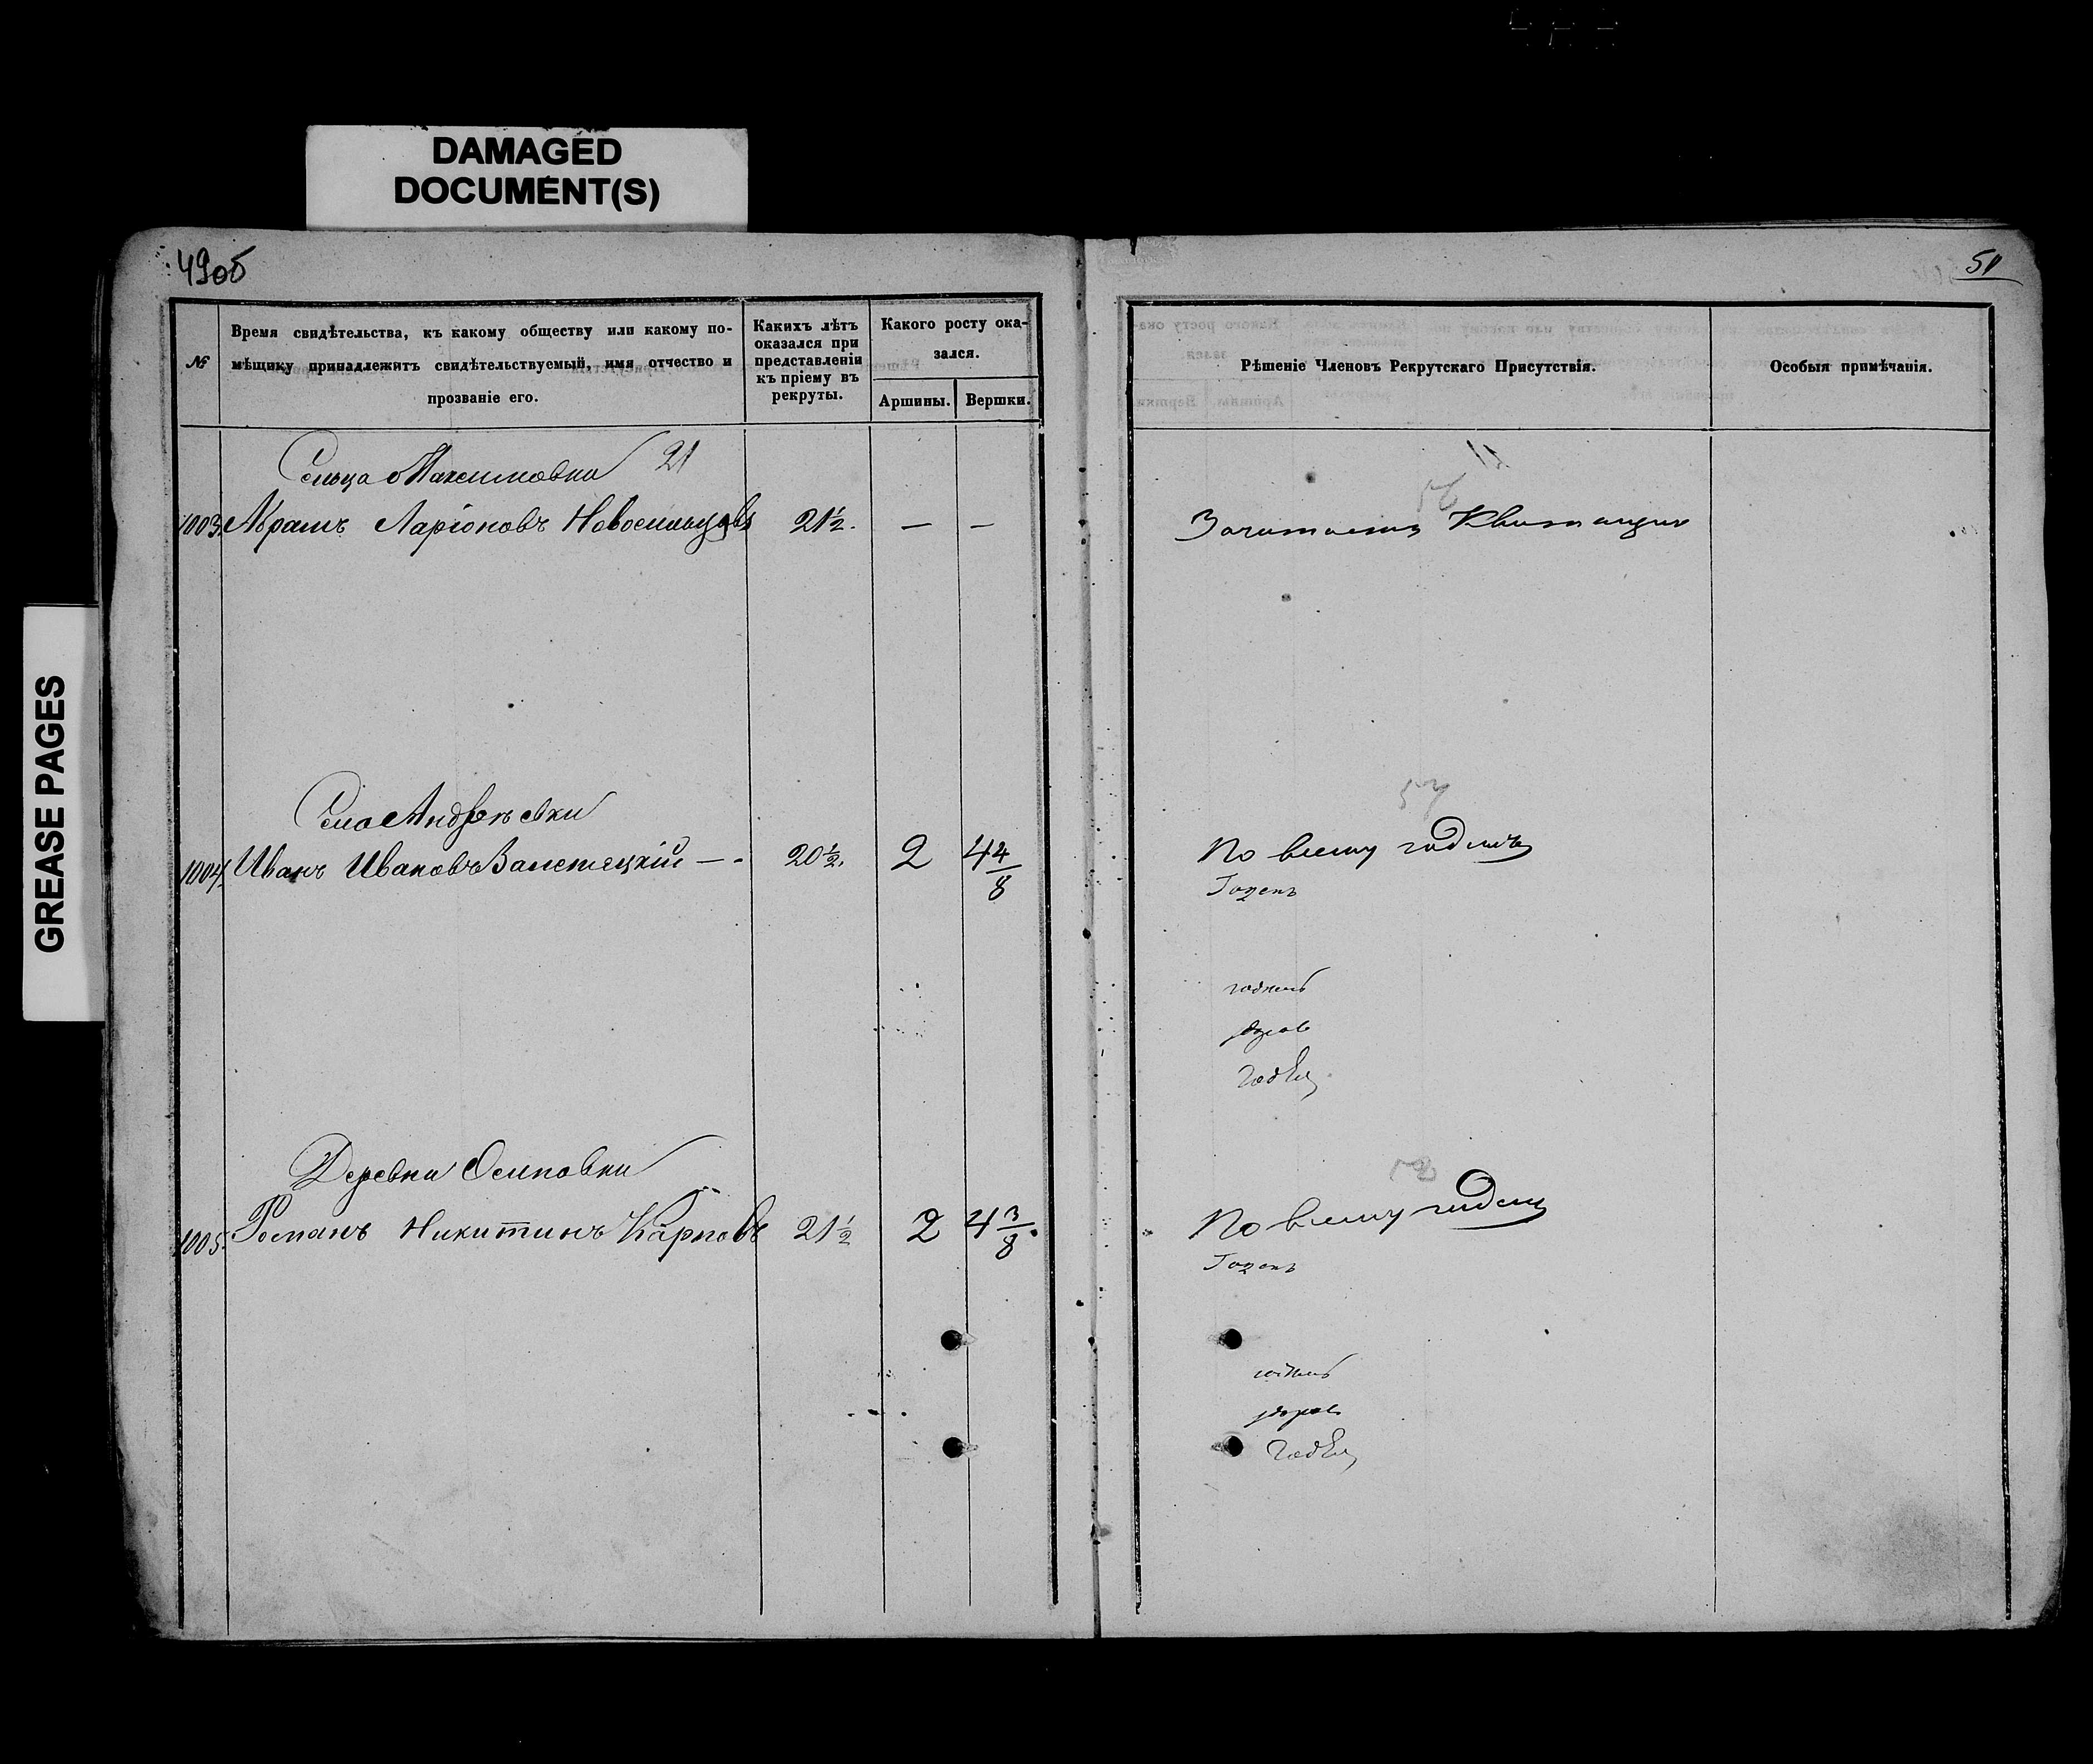 DAMAGED
DOCUMENT(S)
GREASE PAGES
49об
№
Время свидѣтельства, къ какому обществу или какому по-
мѣщику принадлежитъ свидѣтельствуемый, имя отчество и
прозваніе его.
Какихъ лѣтъ
оказался при
представленіи
къ пріему въ
рекруты.
Какого росту ока-
зался.
Аршины. Вершки.
Сельца Максимовки 21
1003. Абрамъ Ларіоновъ Новосильцовъ 21½. — —
Села Андреевки
1004. Иванъ Ивановъ — - 20½. 2 4 4/8
Деревни Осиповки
1005. Романъ Никитинъ Карповъ 21½ 2 4 3/8.
Рѣшеніе Членовъ Рекрутскаго Присутствія.
Особыя примѣчанія.
56
Зачитается Квитанция
57
По всему годенъ
Годенъ
годенъ
здоров
Годен
58
По всему годен
Годенъ
годенъ
здоров
Годен